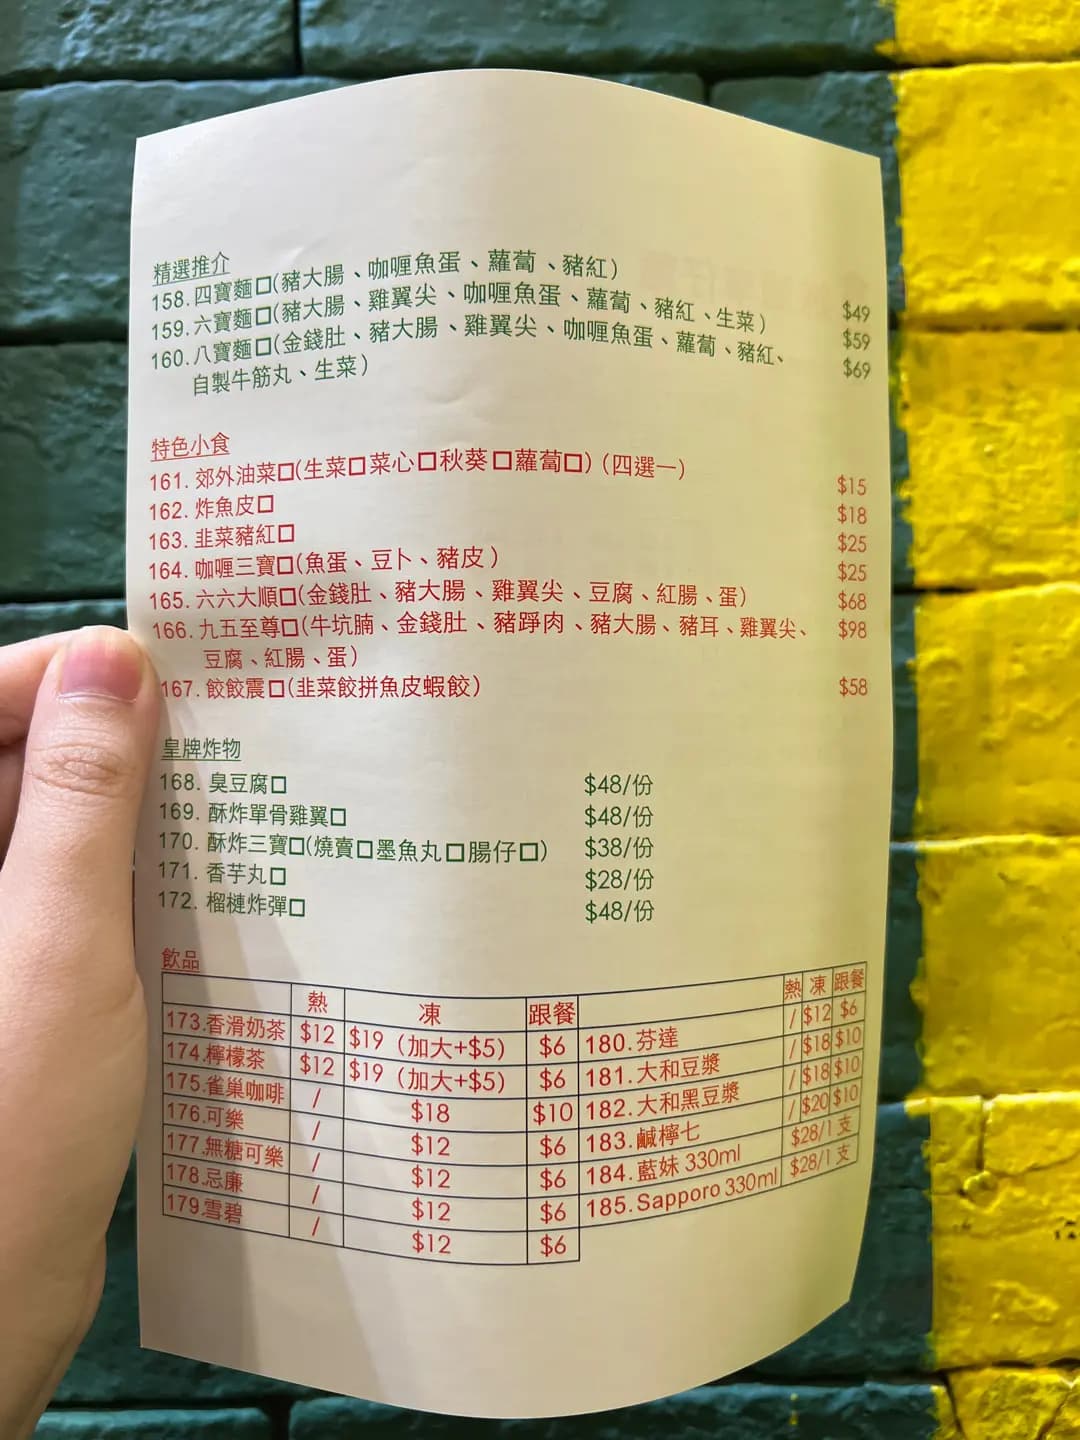 精選推介
158.四寶麵□(豬大腸、咖喱魚蛋、蘿蔔、豬紅) $49
159.六寶麵□(豬大腸、雞翼尖、咖喱魚蛋、蘿蔔、豬紅、生菜) $59
160.八寶麵□(金錢肚、豬大腸、雞翼尖、咖喱魚蛋、蘿蔔、豬紅、 $69
自製牛筋丸、生菜)
特色小食
161. 郊外油菜□(生菜□菜心□秋葵□蘿蔔□) (四選一) $15
162. 炸魚皮□ $18
163. 韭菜豬紅□ $25
164. 咖喱三寶□(魚蛋、豆卜、豬皮) $25
165. 六六大順□(金錢肚、豬大腸、雞翼尖、豆腐、紅腸、蛋) $68
166. 九五至尊□(牛坑腩、金錢肚、豬踭肉、豬大腸、豬耳、雞翼尖、 $98
豆腐、紅腸、蛋)
167. 餃餃震□(韭菜餃拼魚皮蝦餃) $58
皇牌炸物
168. 臭豆腐□ $48/份
169. 酥炸單骨雞翼□ $48/份
170. 酥炸三寶□(燒賣□墨魚丸□腸仔□) $38/份
171. 香芋丸□ $28/份
172. 榴槤炸彈□ $48/份
飲品
熱 凍 跟餐 熱 凍 跟餐
173.香滑奶茶 $12 $19（加大+$5） $6 180.芬達 / $12 $6
174.檸檬茶 $12 $19（加大+$5） $6 181.大和豆漿 / $18 $10
175.雀巢咖啡 / $18 $10 182.大和黑豆漿 / $18 $10
176.可樂 / $12 $6 183.鹹檸七 / $20 $10
177.無糖可樂 / $12 $6 184.藍妹 330ml $28/1支
178.忌廉 / $12 $6 185.Sapporo 330ml $28/1支
179.雪碧 / $12 $6